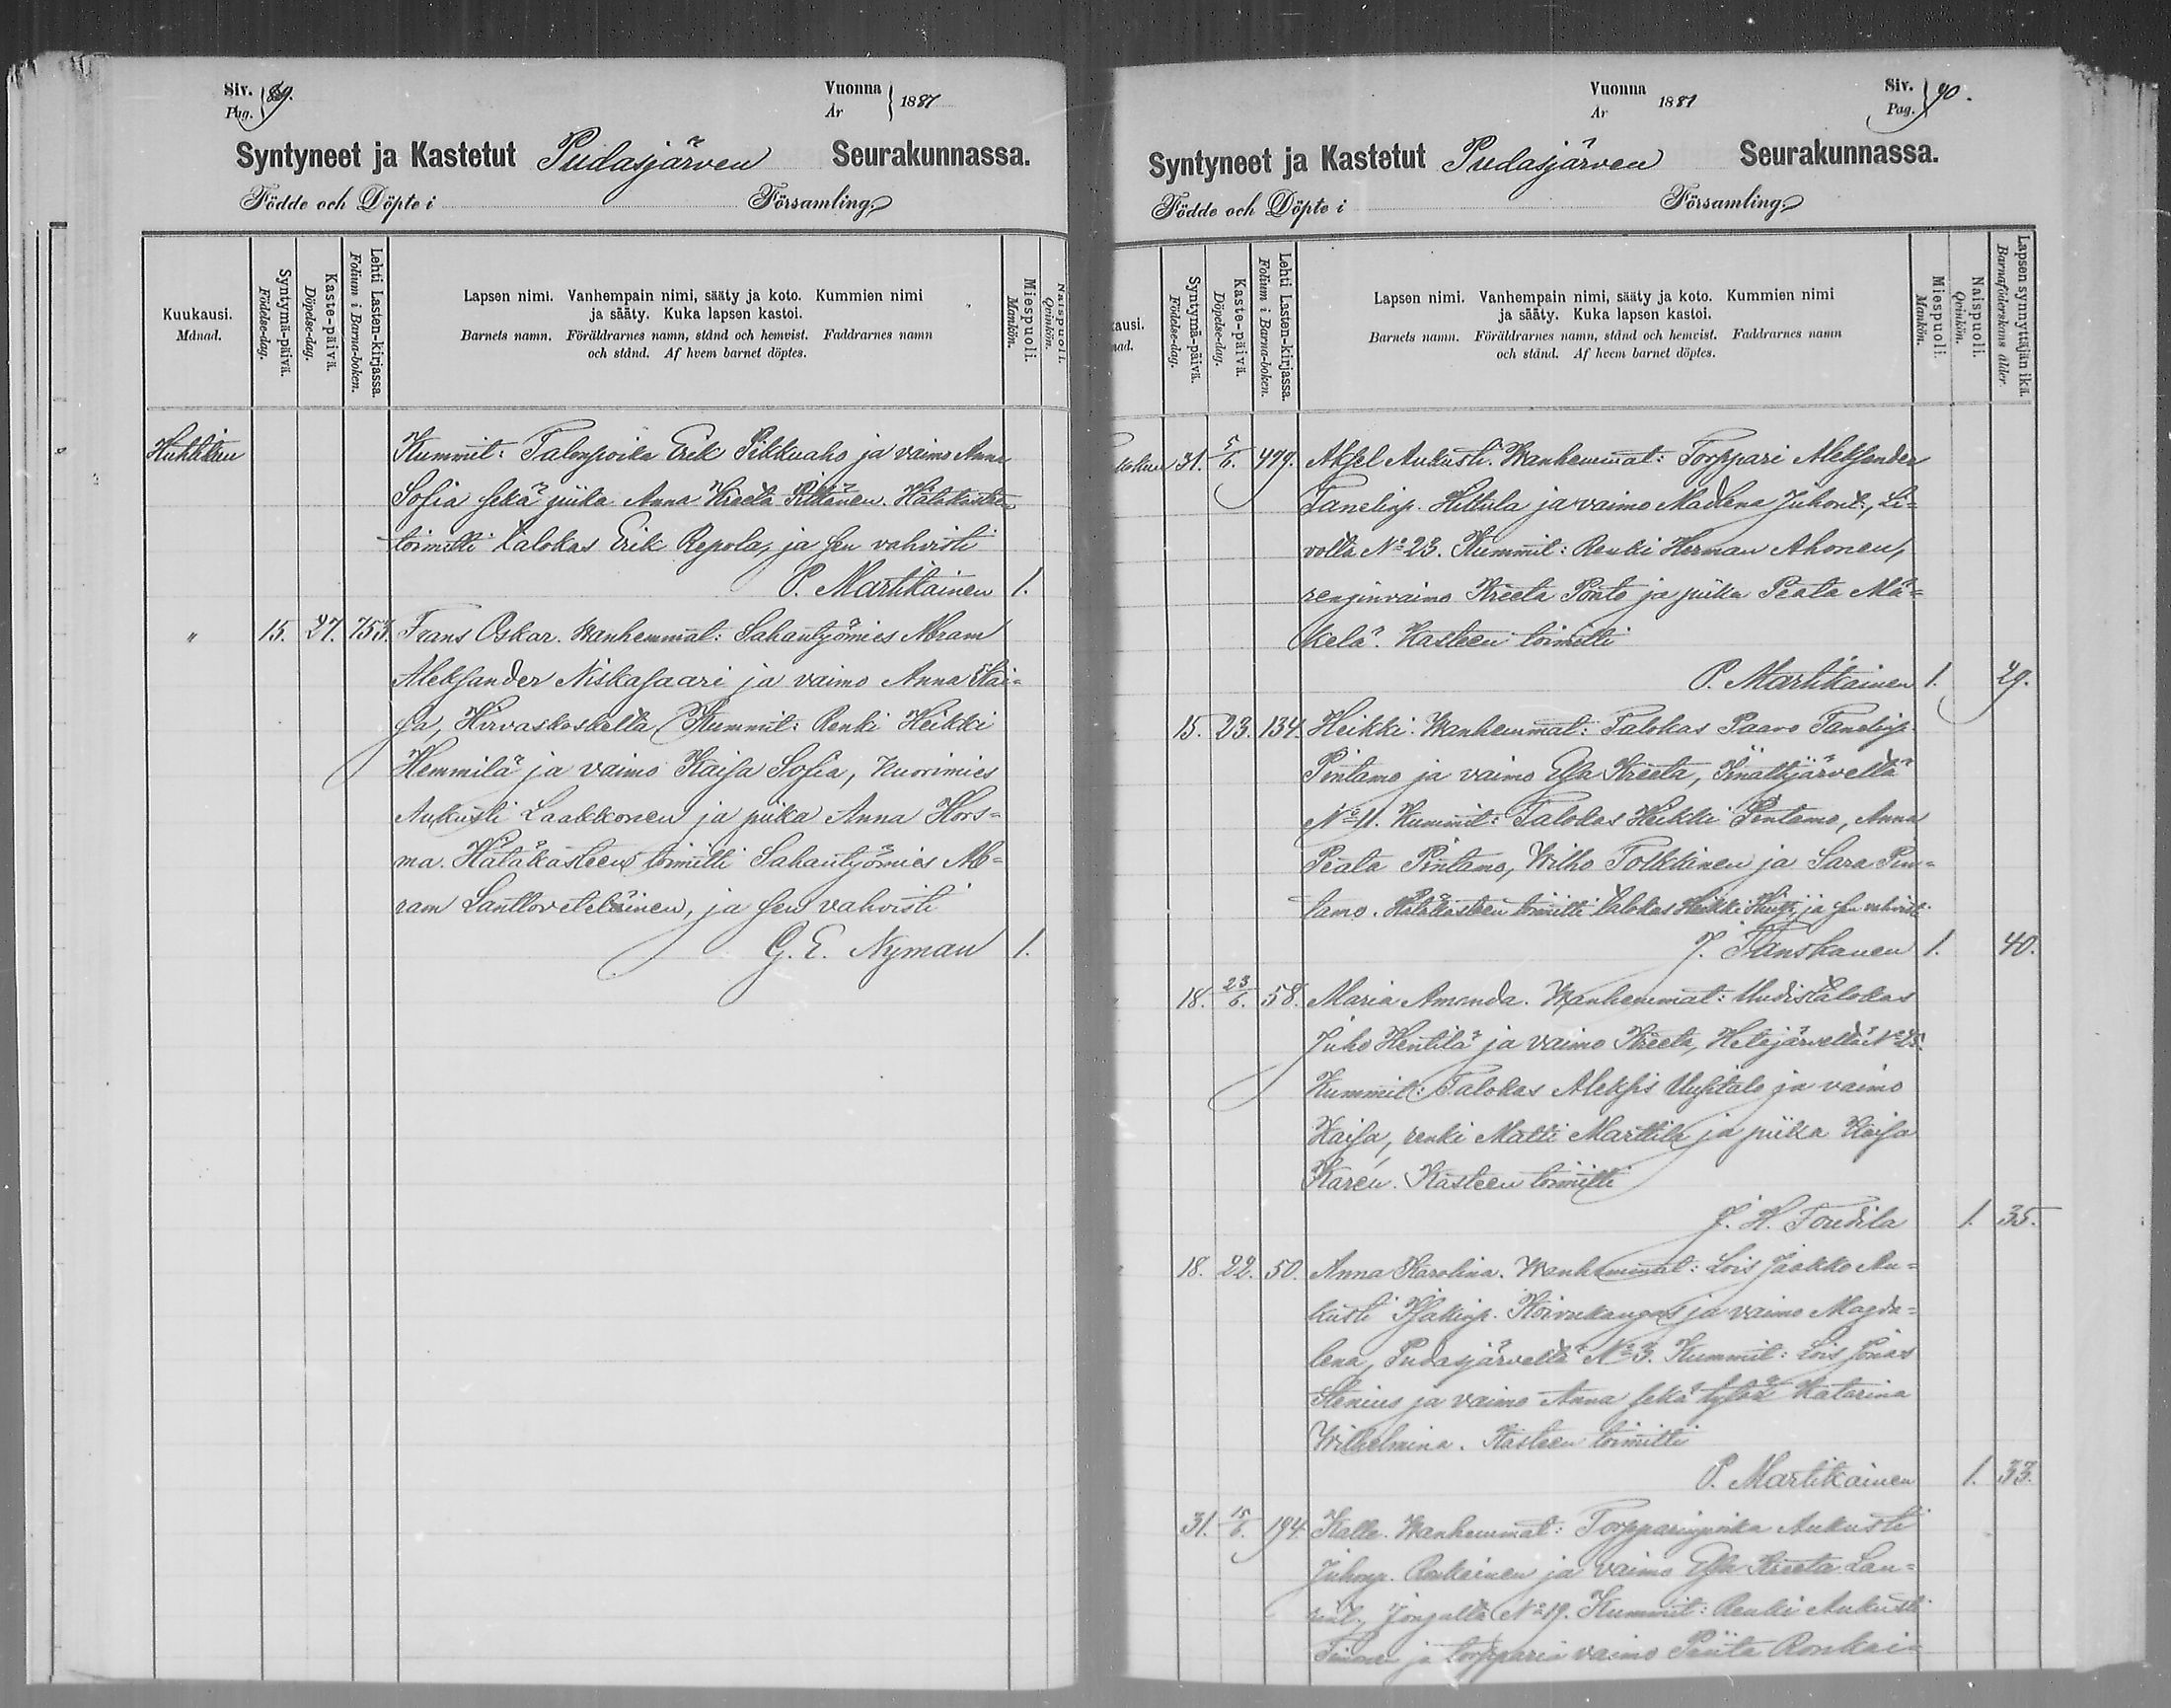 Siv. Pag. 89.
Vuonna År 1887
Syntyneet ja Kastetut Pudasjärven Seurakunnassa.
Födde och Döpte i Församling
Kuukausi. Månad.
Syntymä-päivä. Födelse-dag.
Kaste-päivä. Döpelse-dag.
Lehti Lasten-kirjassa. Folium i Barna-boken.
Lapsen nimi. Vanhempain nimi, sääty ja koto. Kummien nimi
ja sääty. Kuka lapsen kastoi.
Barnets namn. Föräldrarnes namn, stånd och hemvist. Faddrarnes namn
och stånd. Af hvem barnet döptes.
Miespuoli. Mankön.
Naispuoli. Qvinkön.
Huhtikuu Kummit: Talonpoika Erik Pikkuaho ja vaimo Anna
Sofia sekä piika Anna Kreeta Pitkänen. Hätäkasteen
toimitti talokas Erik Repola, ja sen vahvisti
P. Martikainen 1.
" 15. 27. 753. Frans Oskar. Wanhemmat: Sahantyömies Abram
Aleksander Niskasaari ja vaimo Anna Kai-
sa, Hirvaskoskelta. Kummit: Renki Heikki
Hemmilä ja vaimo Kaisa Sofia, nuorimies
Aukusti Laakkonen ja piika Anna Hors-
ma. Hätäkasteen toimitti Sahantyömies Ab-
ram Lanttoveteläinen, ja sen vahvisti
G. E. Nyman 1.
Vuonna År 1887
Siv. Pag. 90.
Syntyneet ja Kastetut Pudasjärven Seurakunnassa.
Födde och Döpte i Församling
kausi. nad.
Syntymä-päivä. Födelse-dag.
Kaste-päivä. Döpelse-dag.
Lehti Lasten-kirjassa. Folium i Barna-boken.
Lapsen nimi. Vanhempain nimi, sääty ja koto. Kummien nimi
ja sääty. Kuka lapsen kastoi.
Barnets namn. Föräldrarnes namn, stånd och hemvist. Faddrarnes namn
och stånd. Af hvem barnet döptes.
Miespuoli. Mankön.
Naispuoli. Qvinkön.
Lapsen synnyttäjän ikä. Barnaföderskans ålder.
31. 5/6. 479. Aksel Aukusti. Wanhemmat: Torppari Aleksander
Tanelinp. Hiltula ja vaimo Madlena Juhont., Li-
volta No 23. Kummit: Renki Herman Ahonen,
renginvaimo Kreeta Ponto ja piika Peata Mä-
kelä. Kasteen toimitti
P. Martikainen 1. 29.
15. 23. 134. Heikki. Wanhemmat: Talokas Paavo Tanelinp.
Pintamo ja vaimo Elsa Kreeta, Iinattijärveltä
No 11. Kummit: Talokas Heikki Pintamo, Anna
Peata Pintamo, Wilho Tolkkinen ja Sara Pin-
tamo. Hätäkasteen toimitti talokas Heikki ja sen vahvisti
J. Tanskanen 1. 40.
18. 23/6. 58. Maria Amanda. Wanhemmat: Uudistalokas
Juho Hentilä ja vaimo Kreeta, Hetejärveltä No 25.
Kummit: Talokas Aleksis Uusitalo ja vaimo
Kaisa, renki Matti Marttila ja piika Kaisa
Karén. Kasteen toimitti
J. H. Toudila 1. 35.
18. 22. 50. Anna Karolina. Wanhemmat: Lois Jaakko Au-
kusti Isakinp. Koivukangas ja vaimo Magda-
lena, Pudasjärveltä No 3. Kummit: Lois Jonas
Stenius ja vaimo Anna sekä tytär Katarina
Wilhelmina. Kasteen toimitti
P. Martikainen 1. 33.
31. 15/6. 194. Kalle. Wanhemmat: Torpparinpoika Aukusti
Juhonp. Ronkainen ja vaimo Elsa Kreeta Lau-
rint., Jongulta No 19. Kummit: Renki Aukusti
Timonen ja torpparin vaimo Piiita Ronkai-